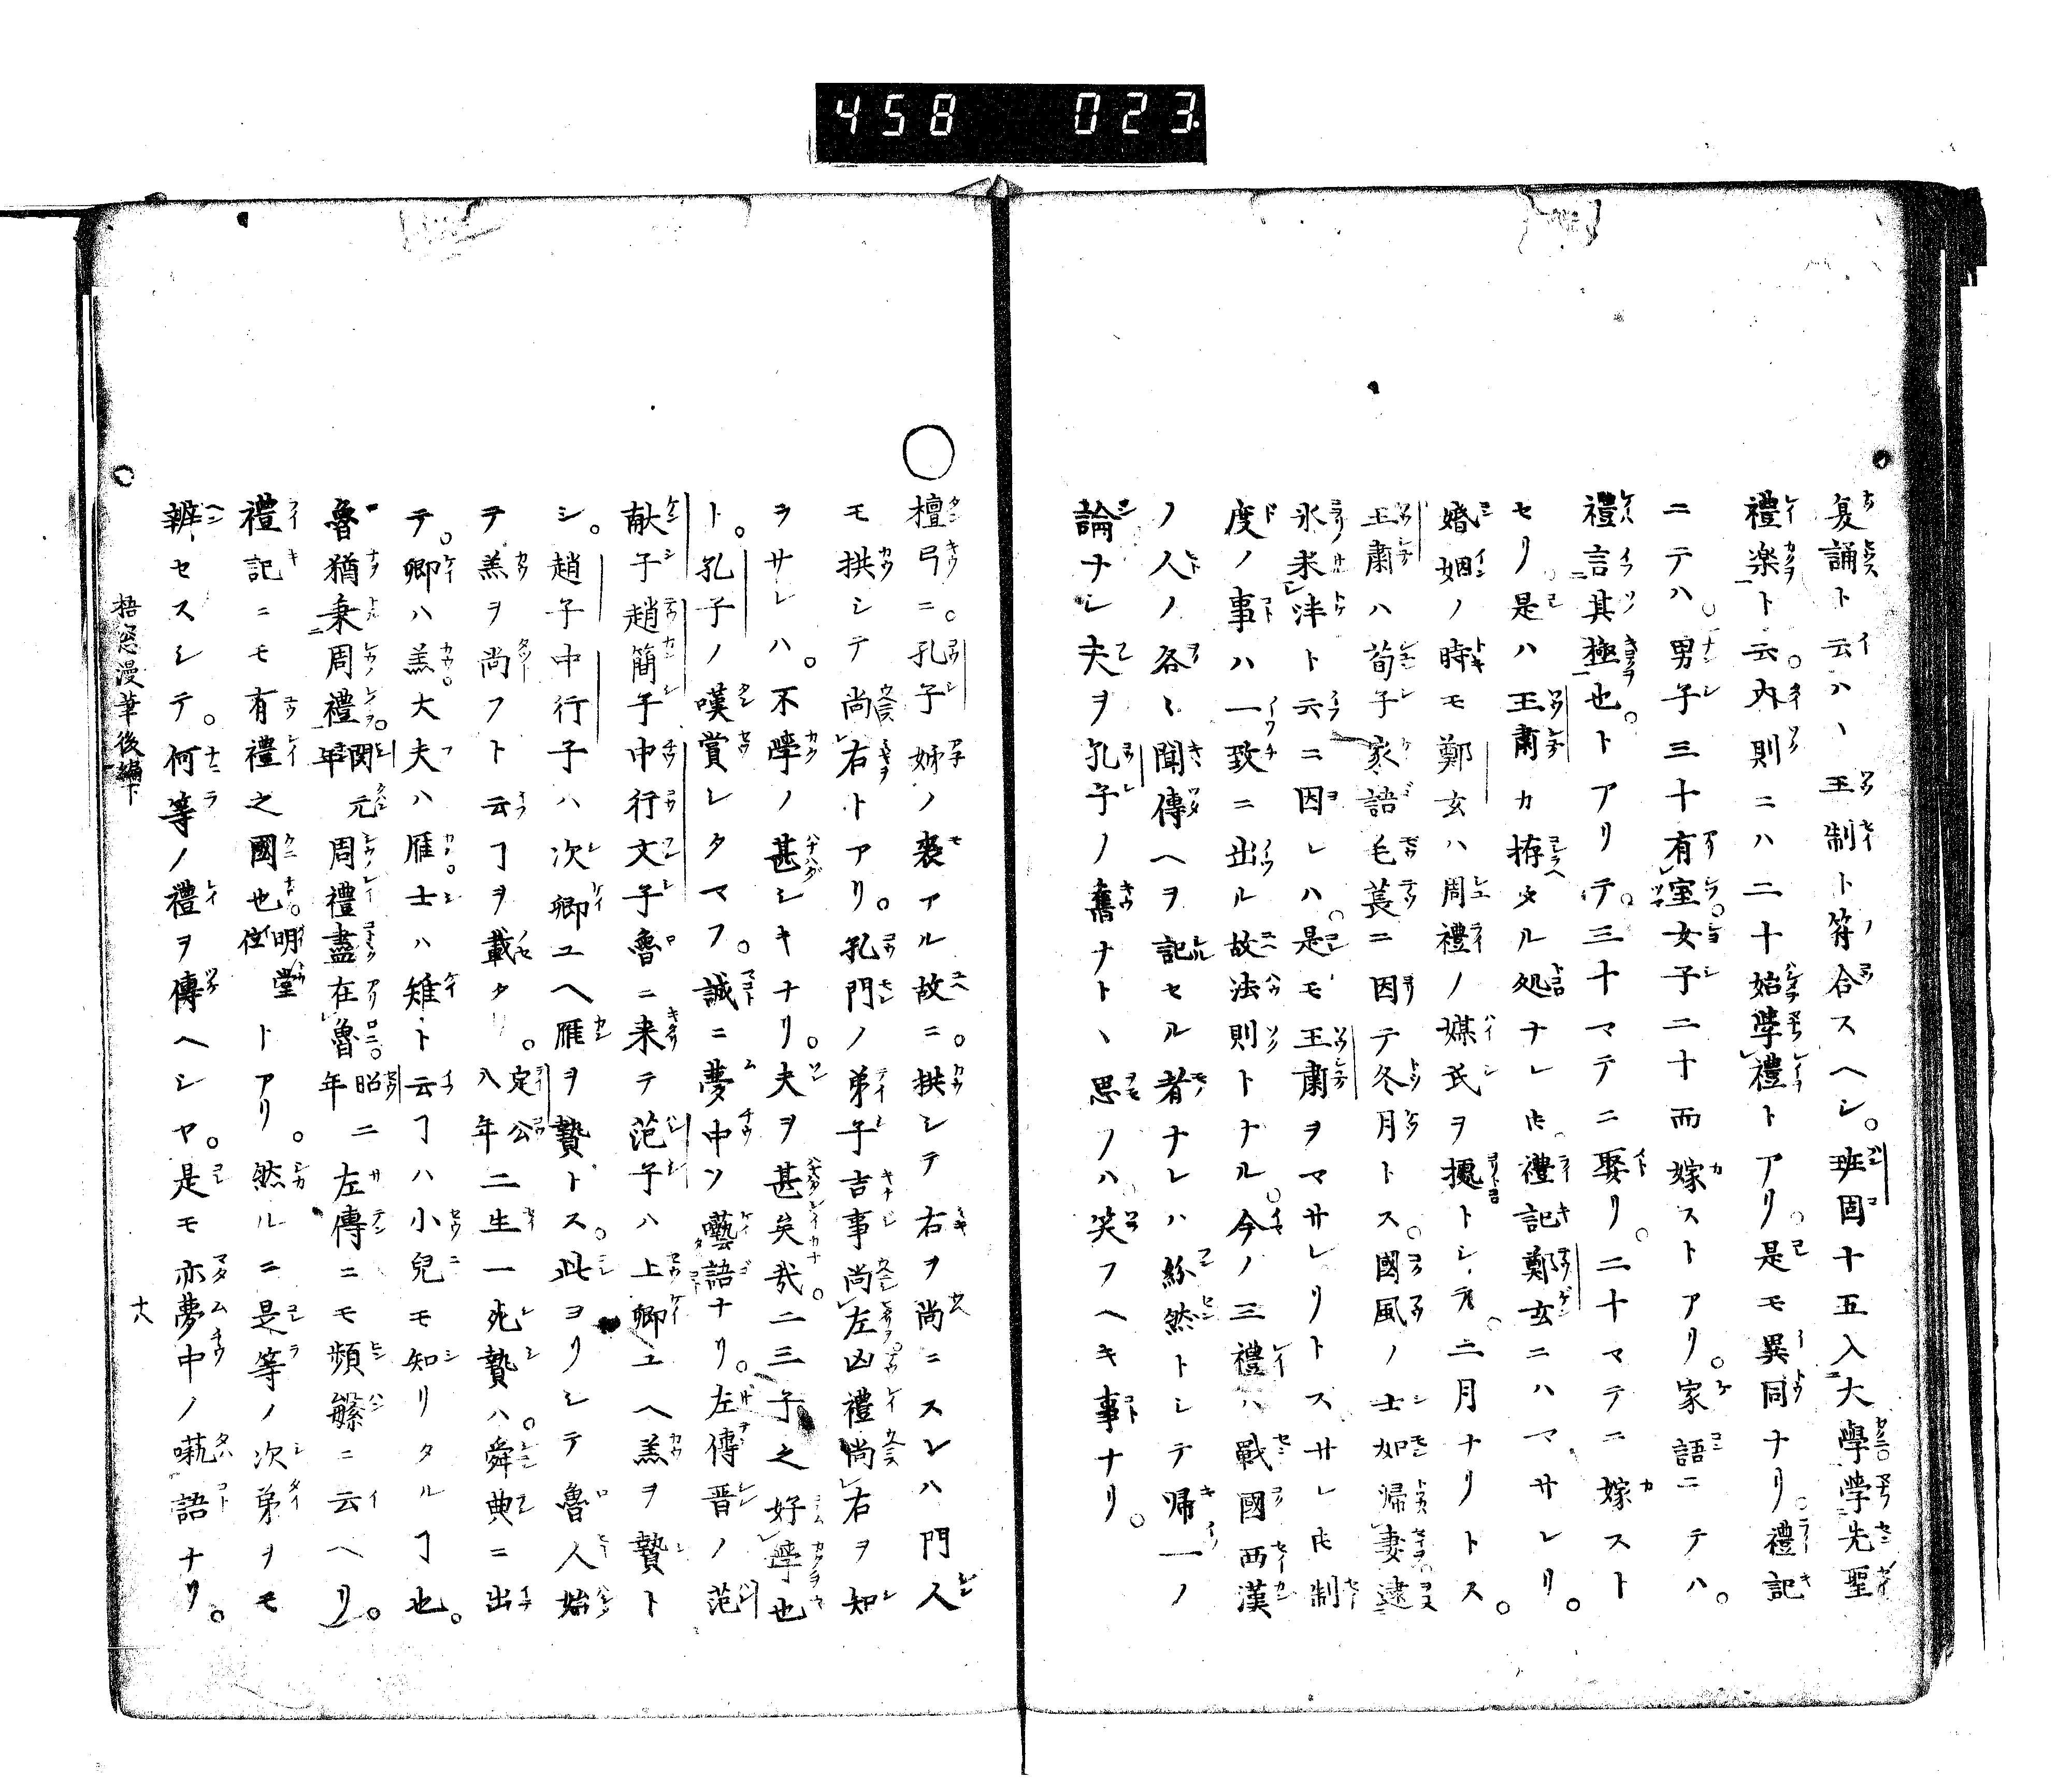 458 023
復誦ト云ハヽ王制ト符合スヘシ。班固十五入大學學先聖
禮楽ト云。内則ニハ二十始學禮トアリ。是モ異同ナリ。禮記
ニテハ。男子三十有室女子二十而嫁ストアリ。家語ニテハ。
禮言其極也。トアリテ。三十マテニ娶リ。二十マテニ嫁スト
セリ。是ハ王肅カ拵タル処ナレ𪜈。禮記鄭玄ニハマサレリ。
婚姻ノ時モ鄭玄ハ周禮ノ媒氏ヲ據トシテ。二月ナリトス。
王肅ハ荀子家語毛萇ニ因テ冬月トス。國風ノ士如帰妻逮
氷未泮ト云ニ因レハ。是モ王肅ヲマサレリトスサレ𪜈制
度ノ事ハ一致ニ出ル故法則トナル。今ノ三禮ハ戰國西漢
ノ人ノ各〻聞傳ヘヲ記セル者ナレハ紛然トシテ帰一ノ
論ナシ夫ヲ孔子ノ舊ナトヽ思ノハ笑フヘキ事ナリ。
○檀弓ニ。孔子姉ノ喪アル故ニ。拱シテ右ヲ尚ニスレハ門人
モ拱シテ尚右トアリ。孔門ノ弟子吉事尚左凶禮尚右ヲ知
ヲサレハ。不學ノ甚シキナリ。夫ヲ甚矣哉。二三子之好學也
ト。孔子ノ嘆賞シタマフ。誠ニ夢中ノ囈語ナリ。左傳晋ノ范
献子趙簡子中行文子魯ニ来テ范子ハ上卿ユヘ羔ヲ贄ト
シ。趙子中行子ハ次卿ユヘ雁ヲ贄トス。此ヨリシテ魯人始
テ羔ヲ尚フト云ヿヲ載タリ。定公八年二生一死贄ハ。舜典ニ出
テ。卿ハ羔。大夫ハ雁。士ハ雉ト云ヿハ小兒モ知リタルヿ也。
魯猶秉周禮。閔元年周禮盡在魯。昭二年左傳ニモ頻繁ニ云ヘリ。
禮記ニモ有禮之國也。明堂位トアリ。然ルニ是等ノ次弟ヲモ
辨セスシテ。何等ノ禮ヲ傳ヘシヤ。是モ亦夢中ノ囈語ナリ。
梧窓漫筆後編下
十八